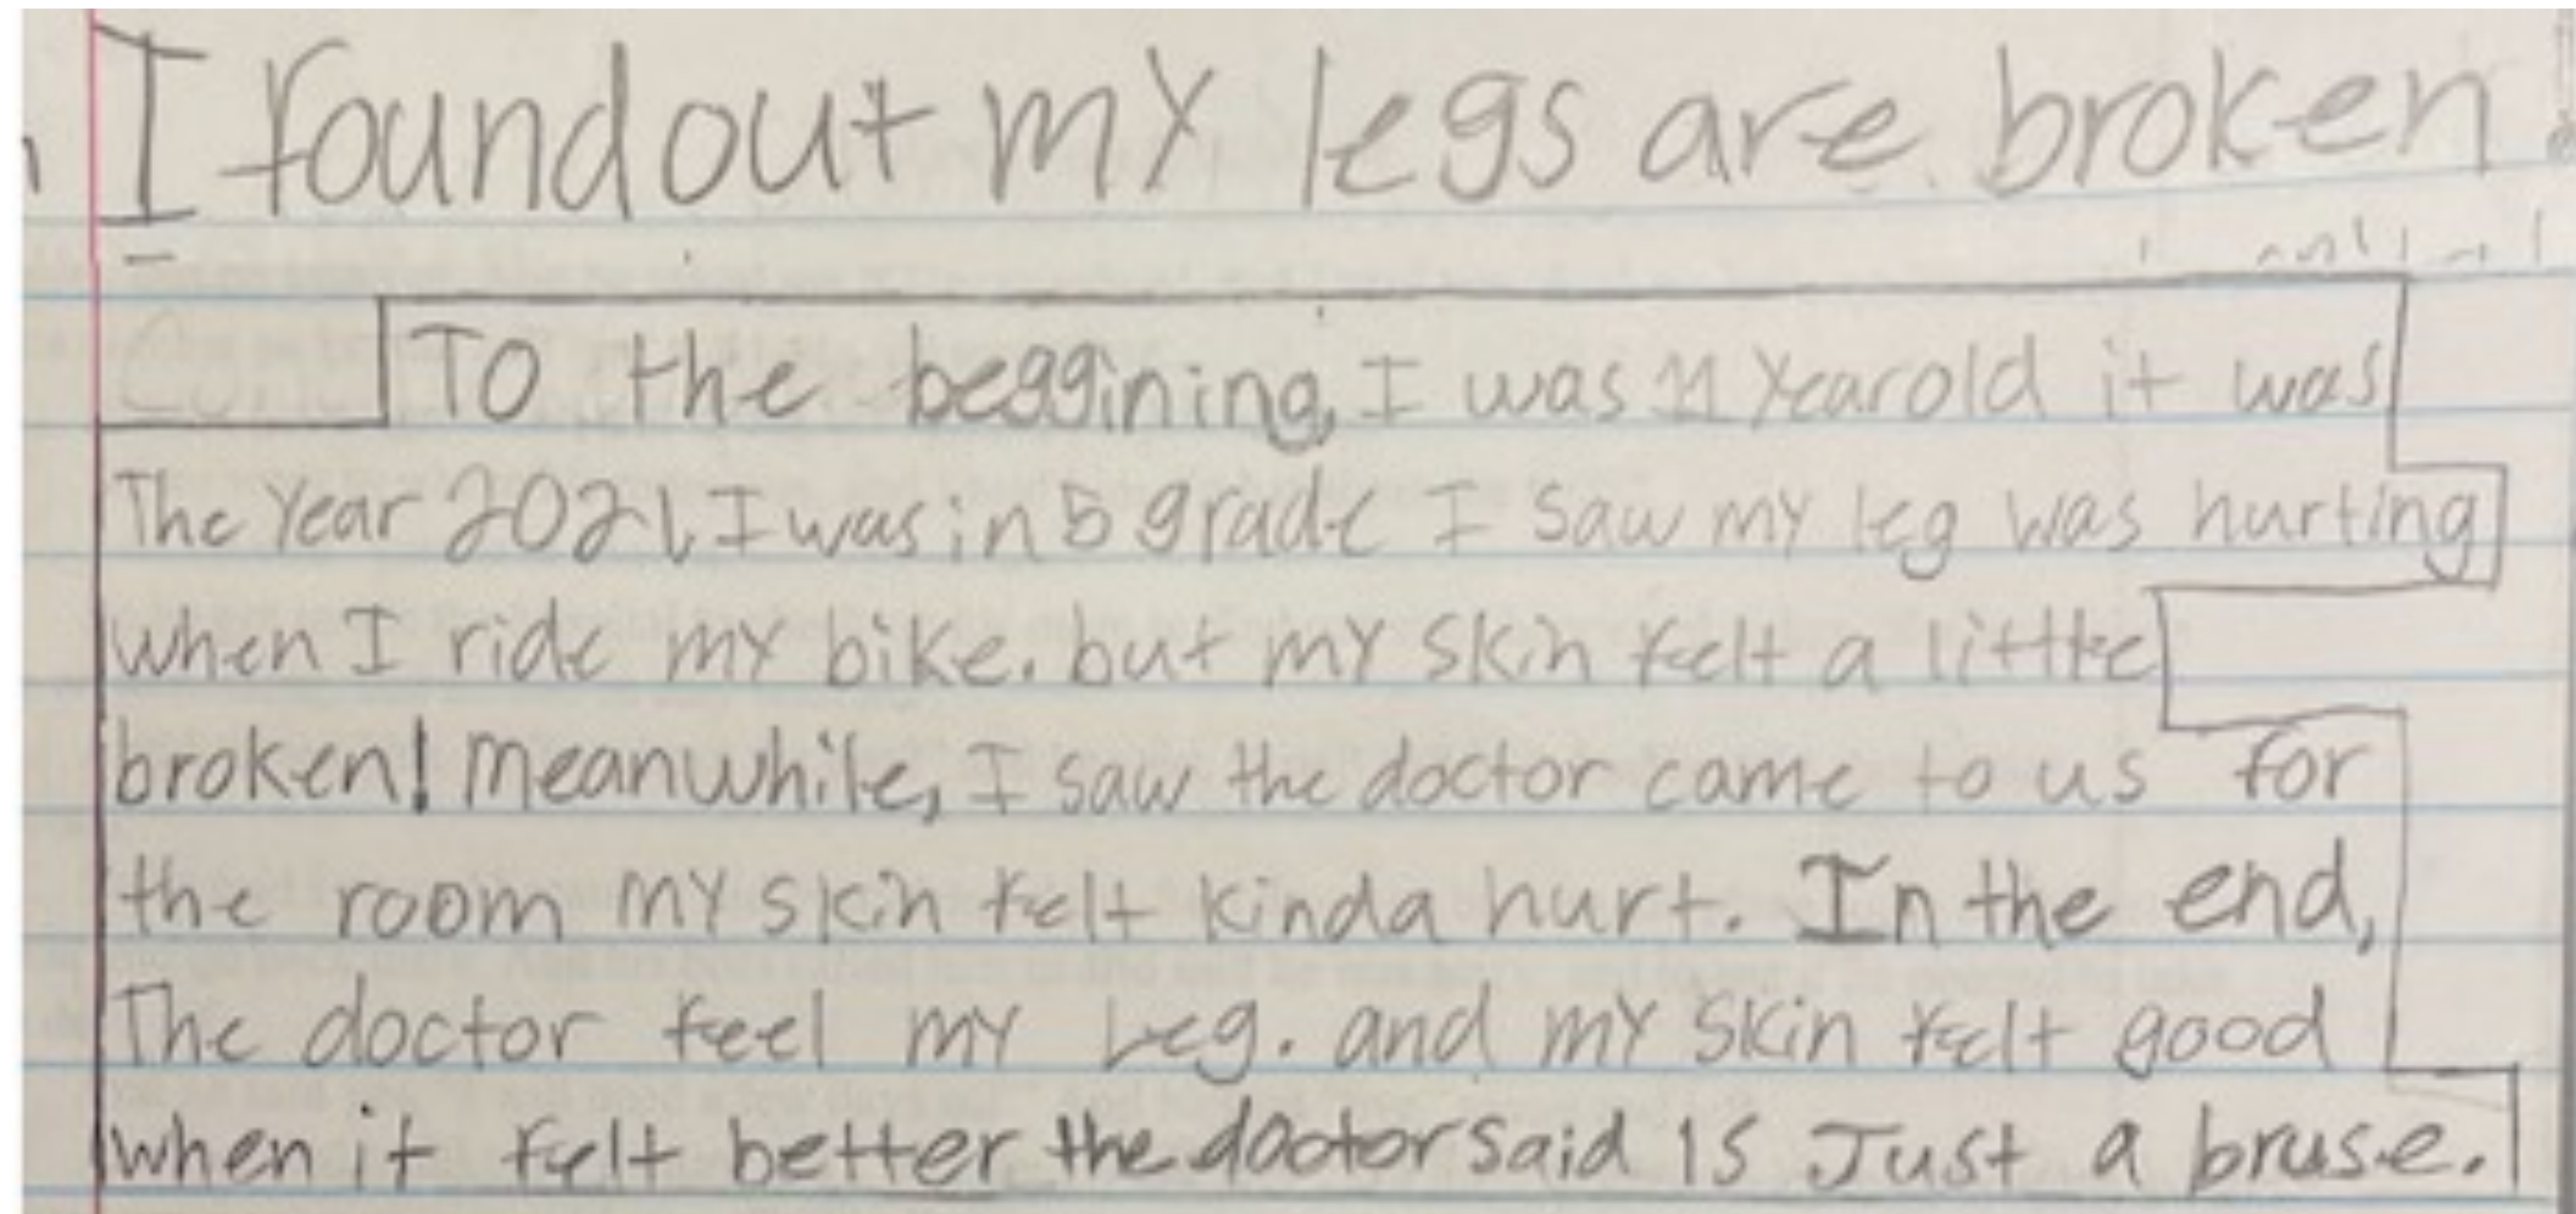 I found out my legs are broken
To the beggining, I was 11 year old it was
The Year 2021, I was in 5 grade I saw my leg was hurting
when I ride my bike. but my skin felt a little
broken! meanwhile, I saw the doctor came to us for
the room my skin felt kinda hurt. In the end,
The doctor feel my Leg. and my skin felt good
when it felt better the doctor said is Just a bruse.